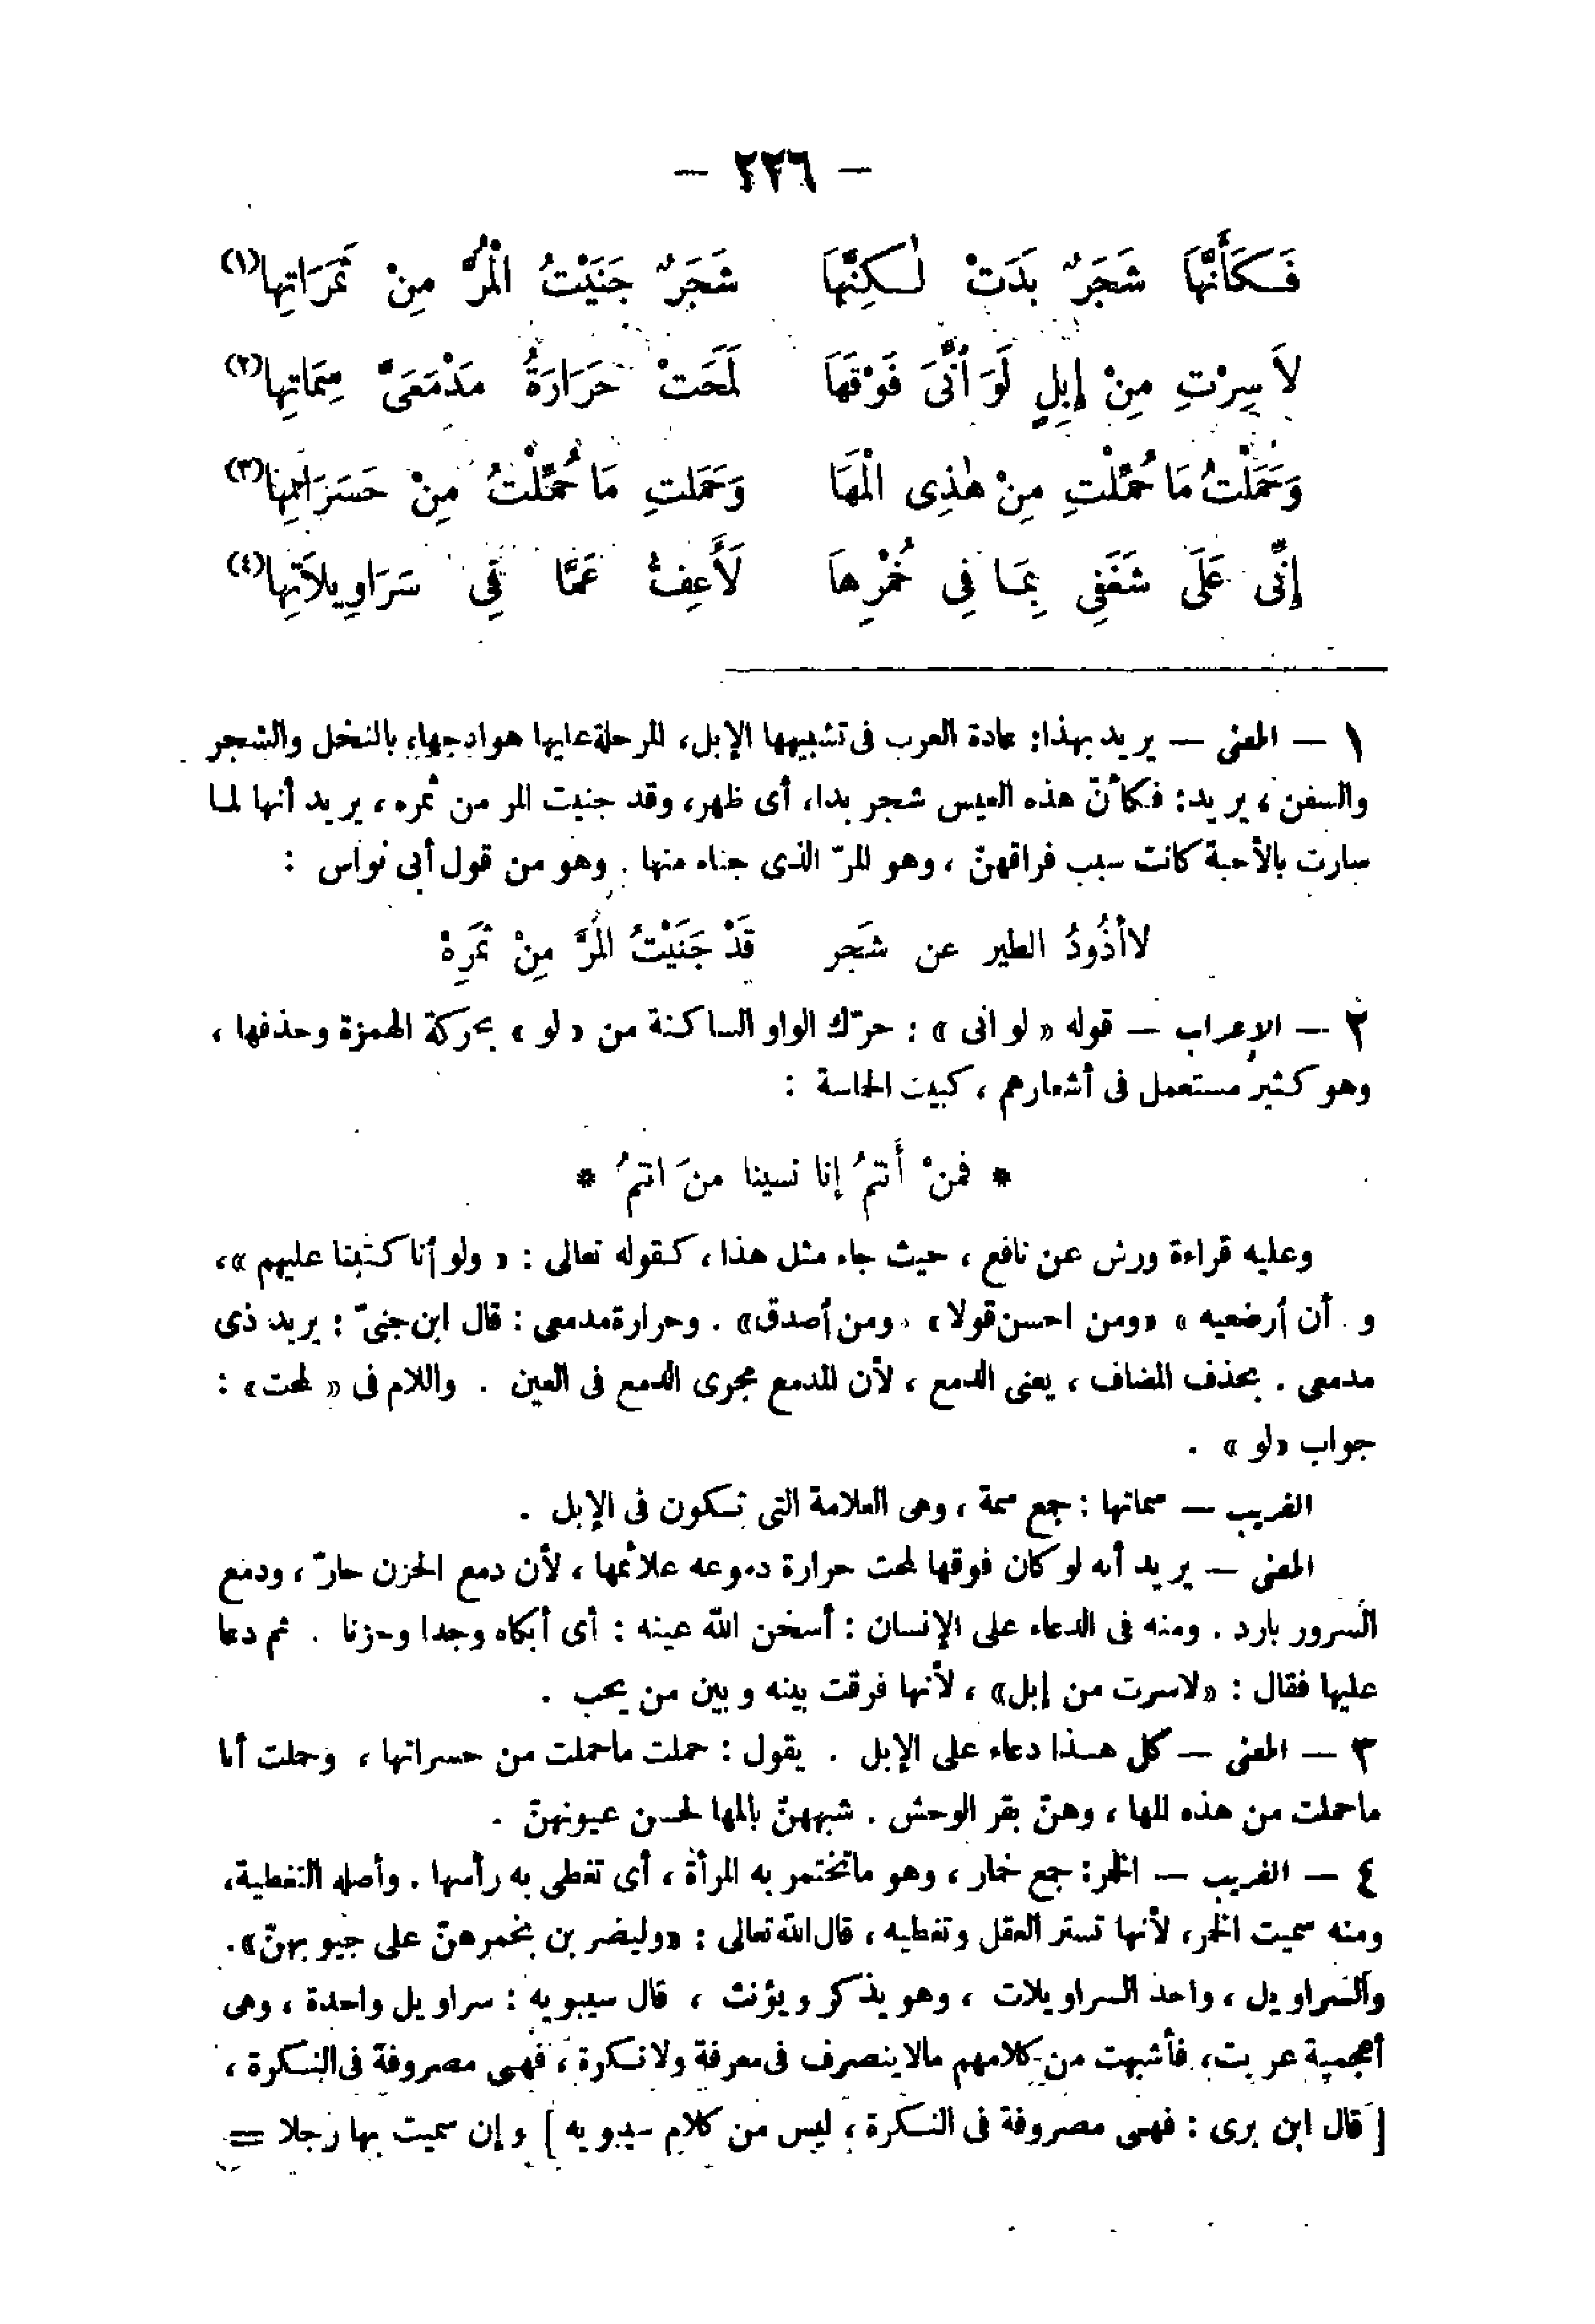 — ٢٢٦ —
فَكَأَنَّهَا شَجَرٌ بَدَتْ لٰكِنَّهَا شَجَرٌ جَنَيْتُ الْمُرَّ مِنْ ثَمَرَاتِهَا(١)
لاَ سِرْتِ مِنْ إِبِلٍ لَوَ اُنِّىَ فَوْقَهَا لَمَحَتْ حَرَارَةُ مَدْمَعَىَّ سِمَاتِهَا(٢)
وَحَمَلْتُ مَا حُمِّلْتِ مِنْ هٰذِى الْمَهَا وَحَمَلتِ مَا حُمِّلْتُ مِنْ حَسَرَاتِهَا(٣)
إِنِّى عَلَى شَغَفِى بِمَا فِى خُمْرِهَا لَأَعِفُّ عَمَّا فِى سَرَاوِيلاَتِهَا(٤)
١ — المعنى — يريد بهذا: عادة العرب فى تشبيهها الإبل، المرحلة عليها هوادجها، بالنخل والشجر
والسفن، يريد: فكأنّ هذه العيس شجر بدا، أى ظهر، وقد جنيت المر من ثمره، يريد أنها لما
سارت بالأحبة كانت سبب فراقهنّ ، وهو المرّ الذى جناه منها . وهو من قول أبى نواس :
لا أذُودُ الطير عن شَجر قَدْ جَنَيْتُ المُرَّ مِنْ ثَمَرِهْ
٢ — الإعراب — قوله « لو انى » : حرّك الواو الساكنة من « لو » بحركة الهمزة وحذفها ،
وهو كثير مستعمل فى أشعارهم ، كبيت الحماسة :
* فمنْ أَنتمُ إنا نسينا منَ انتمُ *
وعليه قراءة ورش عن نافع ، حيث جاء مثل هذا ، كقوله تعالى : « ولو أنا كتبنا عليهم »،
و . أن أرضعيه » «ومن احسن قولا» . ومن أصدق» . وحرارة مدمعى : قال ابن جنىّ : يريد ذى
مدمعى . بحذف المضاف ، يعنى الدمع ، لأن المدمع مجرى الدمع فى العين . واللام فى « لمحت» :
جواب «لو » .
الغريب — سماتها : جمع سمة ، وهى العلامة التى تكون فى الإبل .
المعنى — يريد أنه لو كان فوقها لمحت حرارة دموعه علائمها ، لأن دمع الحزن حارّ ، ودمع
السرور بارد . ومنه فى الدعاء على الإنسان : أسخن الله عينه : أى أبكاه وجدا وحزنا . ثم دعا
عليها فقال : «لا سرت من إبل» ، لأنها فرقت بينه وبين من يحب .
٣ — المعنى — كل هذا دعاء على الإبل . يقول : حملت ماحملت من حسراتها ، وحملت أنا
ماحملت من هذه المها ، وهنّ بقر الوحش . شبههنّ بالمها لحسن عيونهنّ .
٤ — الغريب — الخمر: جمع خمار ، وهو ماتختمر به المرأة ، أى تغطى به رأسها . وأصله التغطية،
ومنه سميت الخمر، لأنها تستر العقل وتغطيه ، قال الله تعالى : «وليضربن بخمرهنّ على جيوبهنّ».
والسراويل ، واحد السراويلات ، وهو يذكر ويؤنث ، قال سيبويه : سراويل واحدة ، وهى
أعجمية عربت، فأشبهت من كلامهم مالا ينصرف فى معرفة ولا نكرة ، فهى مصروفة فى النكرة ،
[ قال ابن برى : فهى مصروفة فى النكرة ، ليس من كلام سيبويه ] وإن سميت بها رجلا =